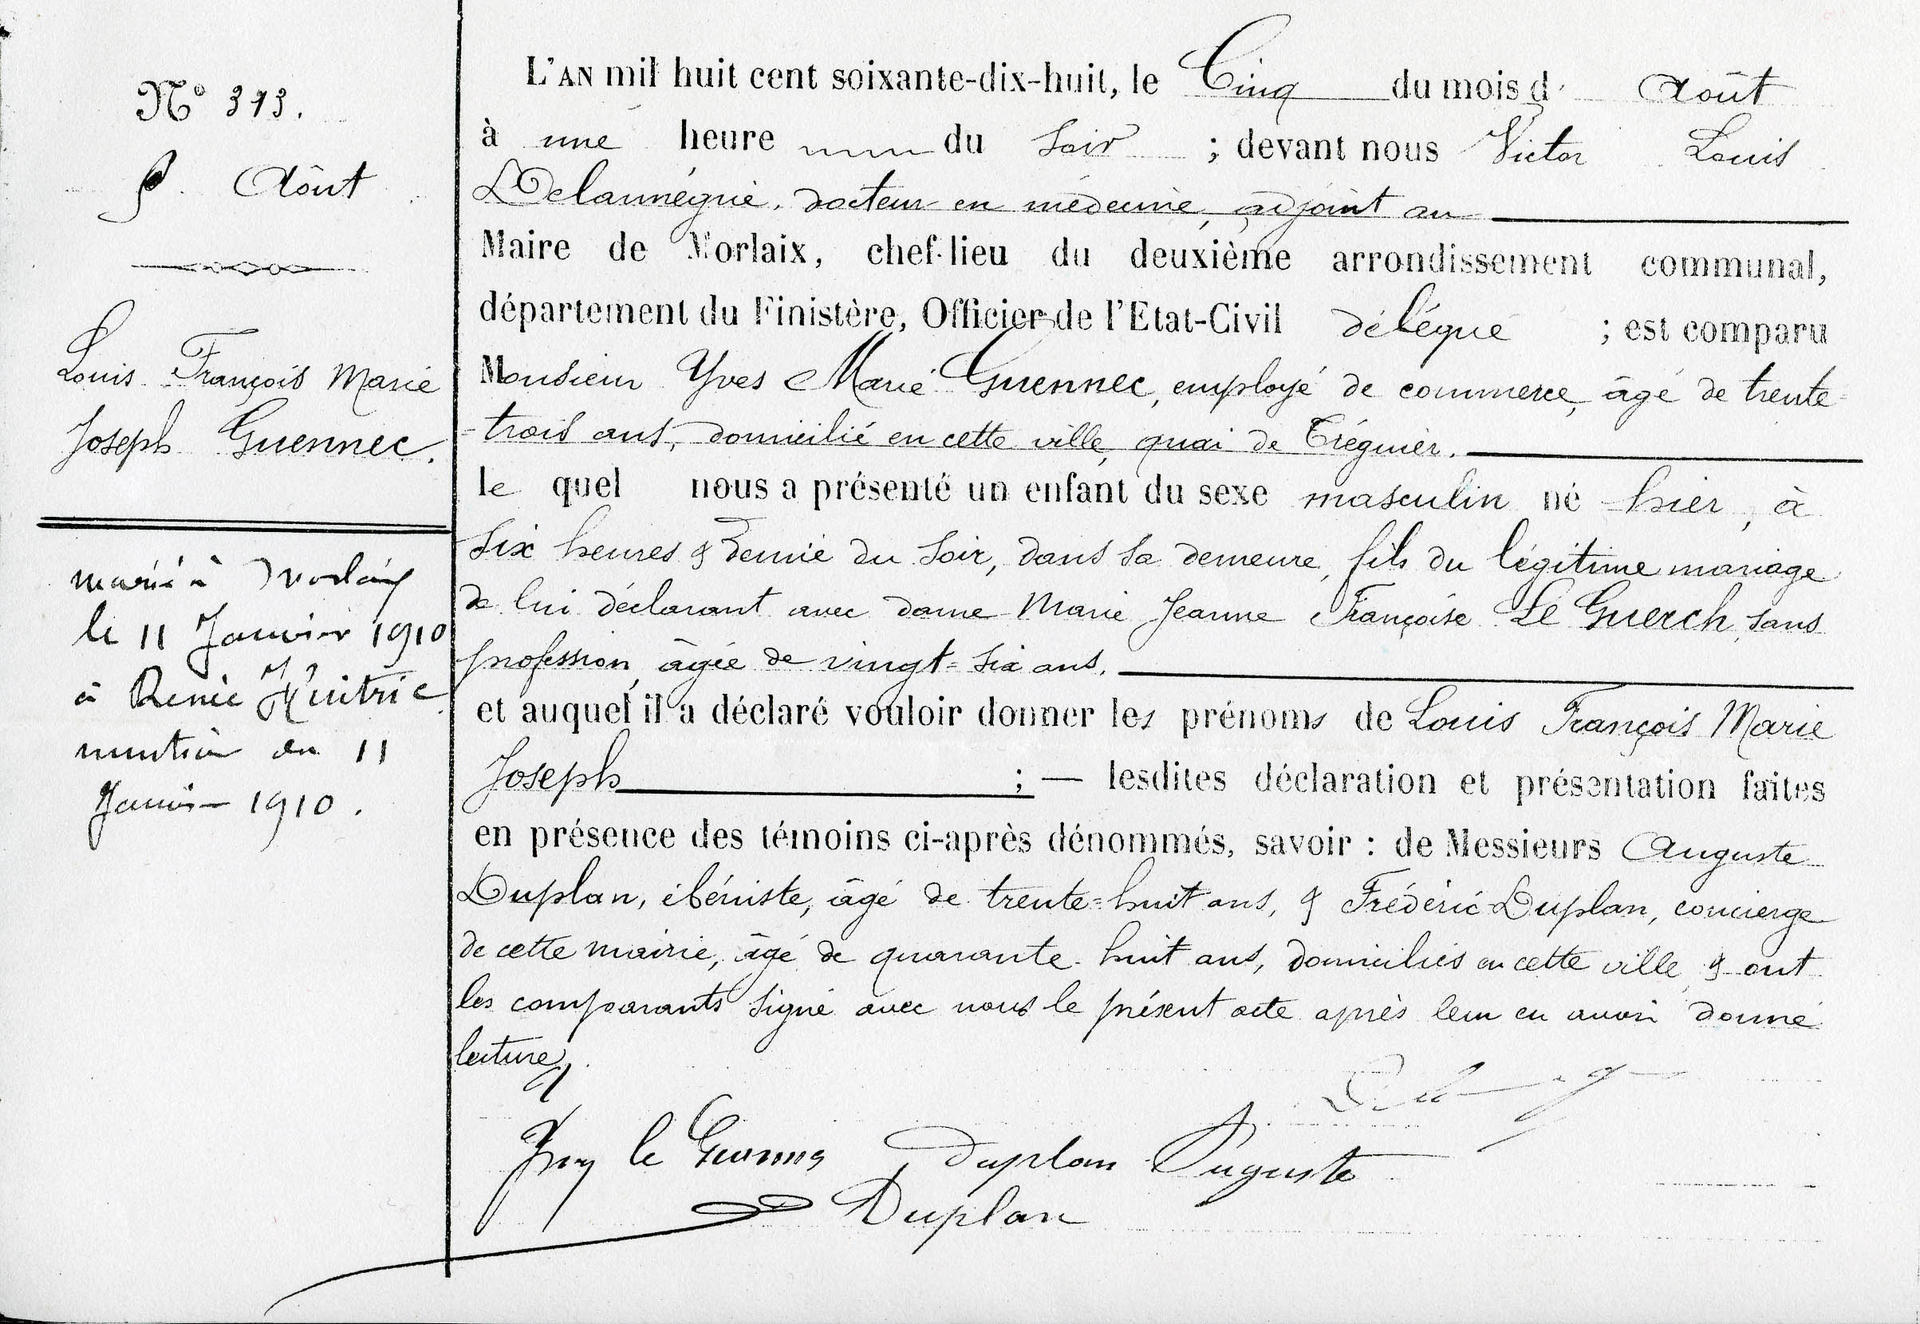 N° 313.
5. Août
Louis François Marie
Joseph Guennec.
marié à Morlaix
le 11 Janvier 1910
à Renée Kuitric
mention du 11
Janvier 1910.
L'AN mil huit cent soixante-dix-huit, le Cinq du mois d' Août
à une heure du soir ; devant nous Victor Louis
Delannégrie, docteur en médecine, adjoint au
Maire de Morlaix, chef-lieu du deuxième arrondissement communal,
département du Finistère, Officier de l'Etat-Civil délégué ; est comparu
Monsieur Yves Marie Guennec, employé de commerce, âgé de trente-
-trois ans, domicilié en cette ville, quai de Tréguier.
le quel nous a présenté un enfant du sexe masculin né hier, à
six heures & demie du soir, dans sa demeure, fils du légitime mariage
de lui déclarant avec dame Marie Jeanne Françoise Le Guerch, sans
profession, âgée de vingt-six ans.
et auquel il a déclaré vouloir donner les prénoms de Louis François Marie
Joseph ; — lesdites déclaration et présentation faites
en présence des témoins ci-après dénommés, savoir : de Messieurs Auguste
Duplan, ébéniste, âgé de trente-huit ans, & Frédéric Duplan, concierge
de cette mairie, âgé de quarante-huit ans, domiciliés en cette ville, & ont
les comparants signé avec nous le présent acte après leur en avoir donné
lecture.
le Duplan Auguste
Duplan